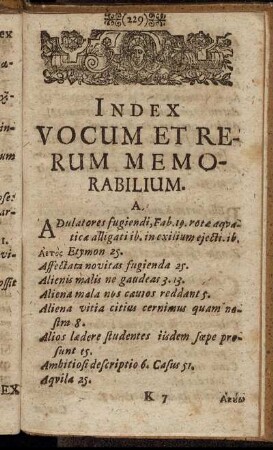 (229)
INDEX
VOCUM ET RE-
RUM MEMO-
RABILIUM.
A.
ADulatores fugiendi, Fab. 19. rotæ aqva-
ticæ alligati ib. in exilium ejecti. ib.
Αετὸς Etymon 25.
Affectata novitas fugienda 25.
Alienis malis ne gaudeas 3. 13.
Aliena mala nos cautos reddant 5.
Aliena vitia citius cernimus quam no-
stra 8.
Alios lædere studentes iisdem sæpe pro-
sunt 15.
Ambitiosi descriptio 6. Casus 51.
Aqvila 25.
K 7